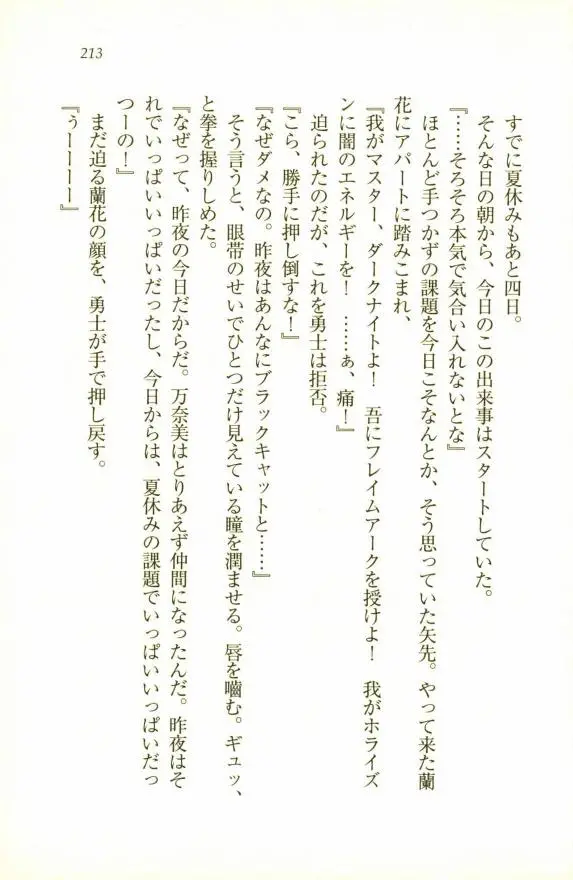 213
すでに夏休みもあと四日。
そんな日の朝から、今日のこの出来事はスタートしていた。
『……そろそろ本気で気合い入れないとな』
ほとんど手つかずの課題を今日こそなんとか、そう思っていた矢先。やって来た蘭
花にアパートに踏みこまれ、
『我がマスター、ダークナイトよ！　吾にフレイムアークを授けよ！　我がホライズ
ンに闇のエネルギーを！　……ぁ、痛！』
迫られたのだが、これを勇士は拒否。
『こら、勝手に押し倒すな！』
『なぜダメなの。昨夜はあんなにブラックキャットと……』
そう言うと、眼帯のせいでひとつだけ見えている瞳を潤ませる。唇を嚙む。ギュッ、
と拳を握りしめた。
『なぜって、昨夜の今日だからだ。万奈美はとりあえず仲間になったんだ。昨夜はそ
れでいっぱいいっぱいだったし、今日からは、夏休みの課題でいっぱいいっぱいだっ
つーの！』
まだ迫る蘭花の顔を、勇士が手で押し戻す。
『ぅーーーー』